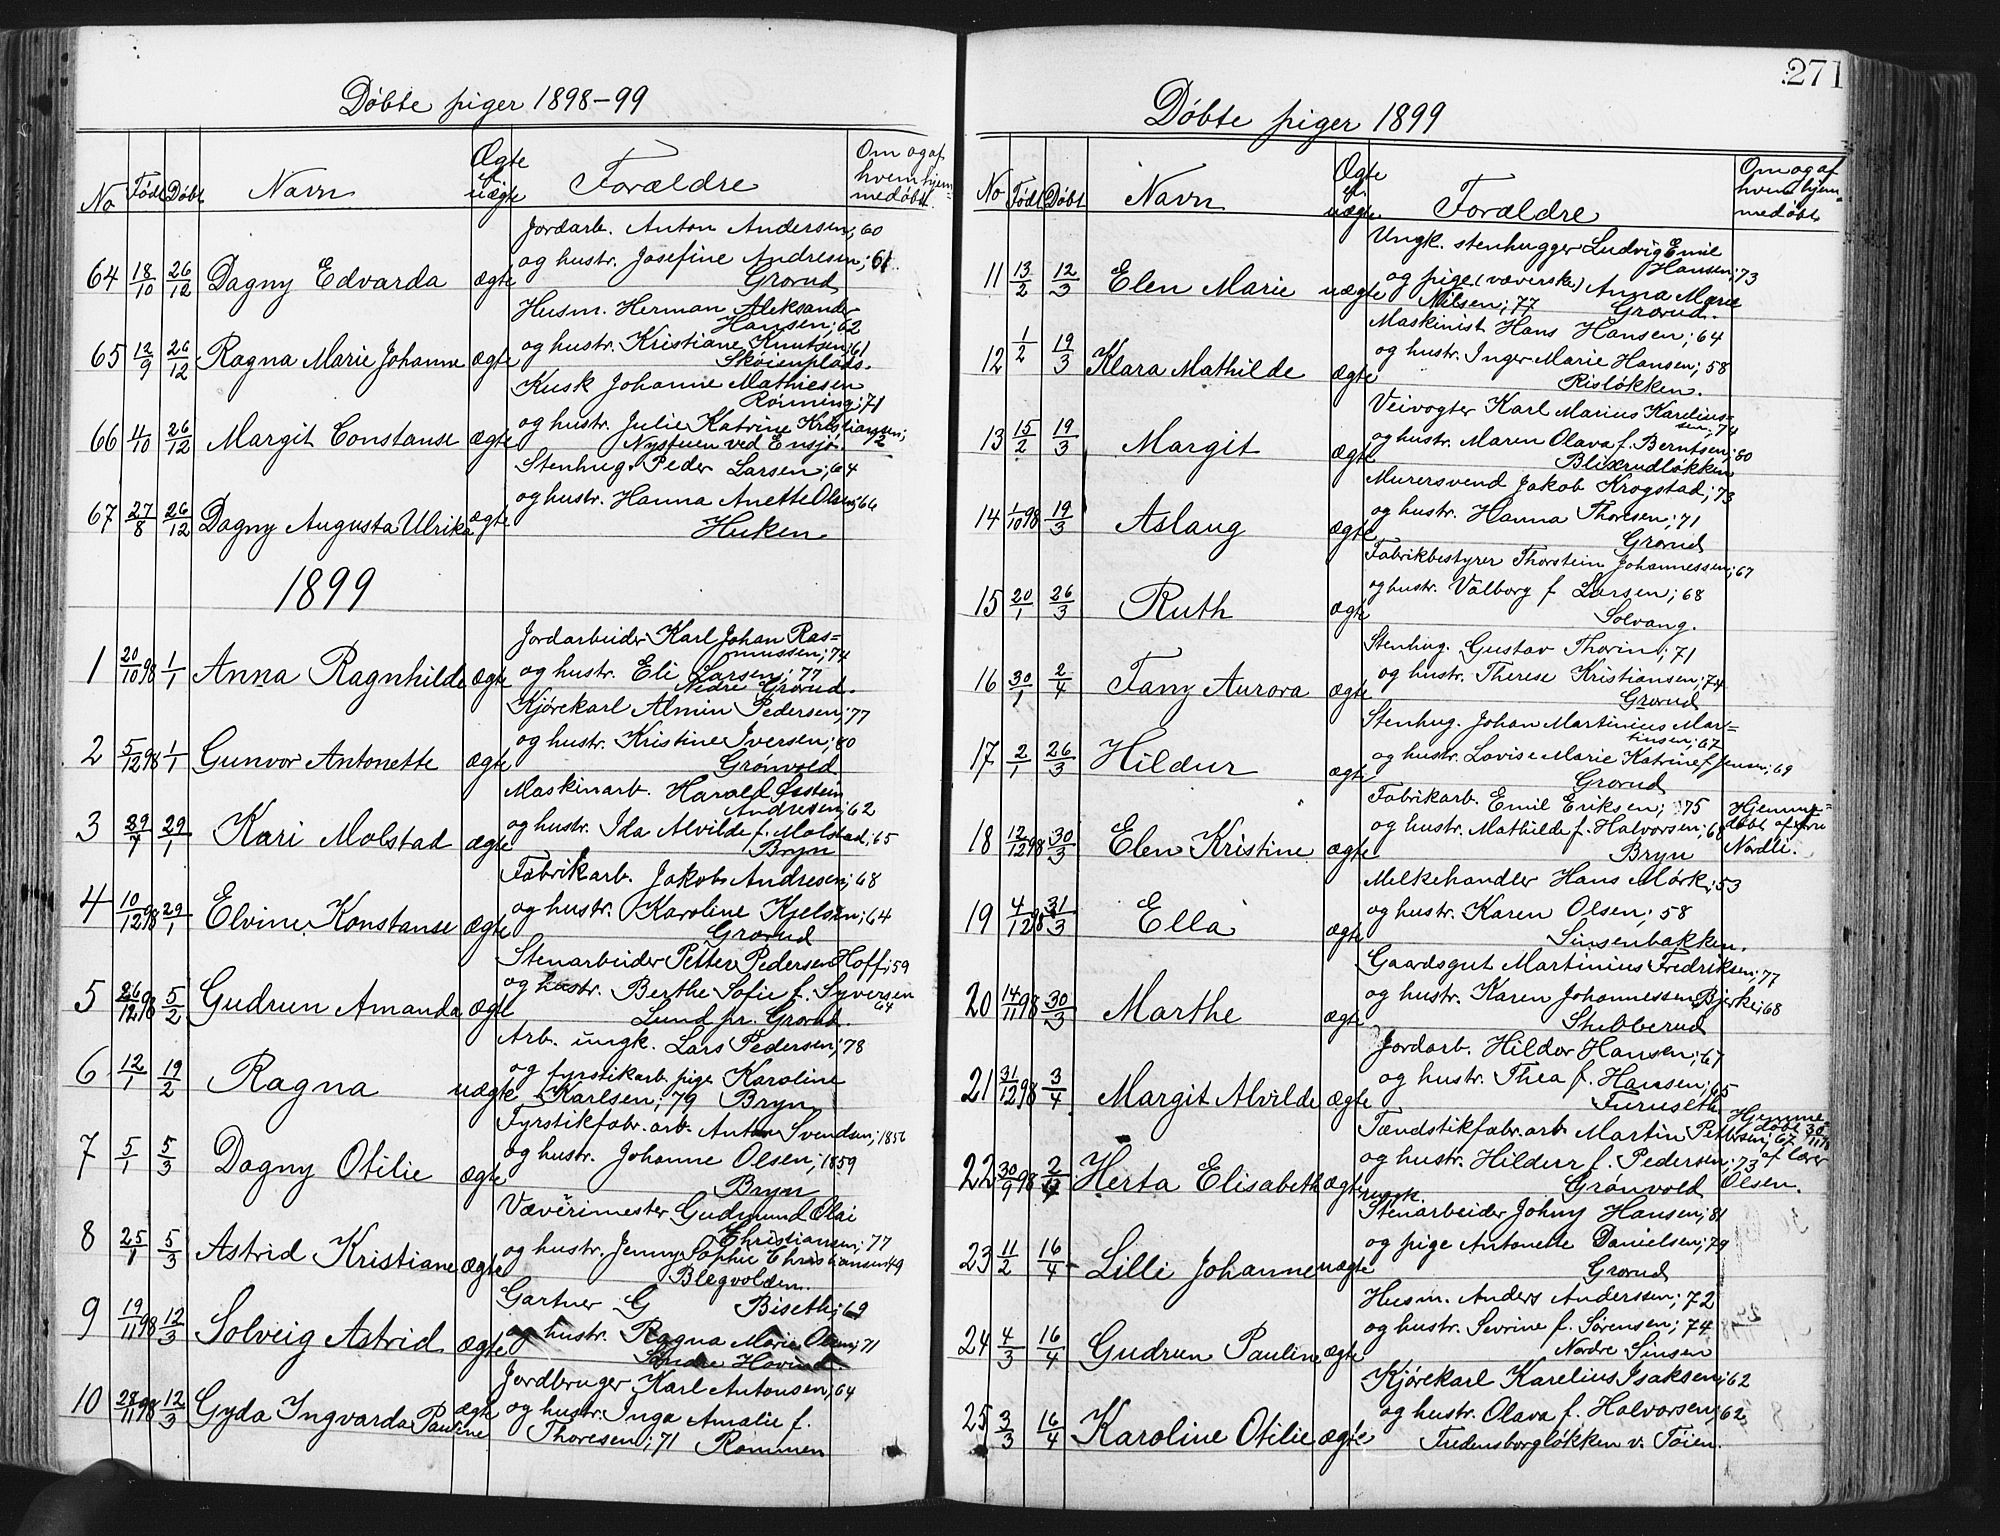 Døbte piger 1898-99
No Født Døbt Navn Ægte el. uægte Forældre Om og af hvem hjemmedøbt.
Jordarb. Anton Andersen; 60
64 18/10 26/12 Dagny Edvarda ægte og hustr. Josefine Andresen; 61.
Grorud
Husm. Herman Aleksander
Hansen; 62
65 12/9 26/12 Ragna Marie Johanne ægte og hustr. Kristiane Knutsen; 61
Skøienplads.
Kusk Johannes Mathiesen
Rønning; 71
66 4/10 26/12 Margit Constanse ægte og hustr. Julie Katrine Kristiansen; 72
Nystuen ved Ensjø.
Stenhug. Peder Larsen; 64
67 27/8 26/12 Dagny Augusta Ulrika ægte og hustr. Hanna Anette Olsen; 66
Huken
1899
Jordarbeider Karl Johan Ras=
mussen; 74
1 20/10 98 1/1 Anna Ragnhilde ægte og hustr. Eli Larsen; 77
Nedre Grorud.
Kjørekarl Almin Pedersen; 77
2 5/12 98 1/1 Gunvor Antonette ægte og hustr. Kristine Iversen; 80
Grønvold
Maskinarb. Harald Østein
Andresen; 62
3 29/7 29/1 Kari Molstad ægte og hustr. Ida Alvilde f. Molstad, 65
Bryn
Fabrikarb. Jakob Andresen; 68
4 10/12 98 29/1 Elvine Konstanse ægte og hustr. Karoline Kjelsen; 64
Grorud
Stenarbeider Petter Pedersen Hoff; 59
5 26/12 98 5/2 Gudrun Amanda ægte og hustr. Berthe Sofie f. Syversen
64
Lund pr. Grorud.
Arb. ungk. Lars Pedersen; 78
6 12/1 19/2 Ragna uægte og fyrstikarb. pige Karoline
Karlsen; 79 Bryn
Fyrstikfabr. arb. Anton Svendsen; 1856
7 5/1 5/3 Dagny Otilie ægte og hustr. Johanne Olsen; 1859
Bryn
Væverimester Gudmund Olai
Christiansen; 77
8 25/1 5/3 Astrid Kristiane ægte og hustr. Jenny Sophie Christiansen 49
Blegvolden.
Gartner G Biseth; 69
9 19/11 98 12/3 Solveig Astrid ægte og hustr. Ragna Marie Olsen; 71
Søndre Hovind.
Jordbruger Karl Antonsen; 64
10 28/11 98 12/3 Gyda Ingvarda Pauline ægte og hustr. Inga Amalie f.
Thoresen; 71 Rommen
271
Døbte piger 1899
No Født Døbt Navn Ægte el. uægte Forældre Om og af hvem hjemmedøbt
Ungk. stenhugger Ludvig Emil
Hansen; 73
11 13/2 12/3 Elen Marie uægte og pige (væverske) Anna Marie
Nilsen; 77 Grorud.
Maskinist Hans Hansen; 64
12 1/2 19/3 Klara Mathilde ægte og hustr. Inger Marie Hansen; 58
Risløkken.
Veivogter Karl Marius Karelius=
sen; 74
13 15/2 19/3 Margit ægte og hustr. Maren Olava f. Berntsen; 80
Blixrudløkken
Murersvend Jakob Krogstad; 73
14 1/10 98 19/3 Aslaug ægte og hustr. Hanna Thoresen; 71
Grorud
Fabrikbestyrer Thorstein Johannessen; 67
15 20/1 26/3 Ruth ægte og hustr. Valborg f Larsen; 68
Solvang.
Stenhug. Gustav Thorin; 71
16 30/1 2/4 Fany Aurora ægte og hustr. Therese Kristiansen; 74
Grorud
Stenhug. Johan Martinius Mar=
tinsen; 67
17 2/1 26/3 Hildur ægte og hustr. Lovise Marie Katrine f Jensen; 69
Grorud
Fabrikarb. Emil Eriksen; 75 Hjemme=
18 12/12 98 30/3 Elen Kristine ægte og hustr. Mathilde f. Halvorsen; 68 døbt af Fru
Bryn Nordli.
Melkehandler Hans Mørk; 53
19 4/12 98 31/3 Ella ægte og hustr. Karen Olsen; 58
Sinsenbakken.
Gaardsgut Martinius Fredriksen; 77
20 14/11 98 30/3 Marthe ægte og hustr. Karen Johannessen Bjerke; 68
Stubberud
Jordarb. Hildor Hansen; 67
21 31/12 98 3/4 Margit Alvilde ægte og hustr. Thea f. Hansen; 65
Furuseth
Tændstikfabr. arb. Martin Pettersen; 67 Hjemme døbt 30/11 98
22 30/9 98 2/4 Herta Elisabeth ægte og hustr. Hildur f. Pedersen; 73 af lærer
Grønvold Olsen.
ungk.
Stenarbeider Johny Hansen; 81
23 11/2 16/4 Lilli Johanne uægte og pige Antonette Danielsen; 79
Grorud
Husm. Anders Anderssen; 72
24 4/3 16/4 Gudrun Pauline ægte og hustr. Sevrine f. Sørensen; 74
Nordre Sinsen
Kjørekarl Karelius Isaksen; 62
25 3/3 16/4 Karoline Otilie ægte og hustr. Olava f. Halvorsen; 62
Fredensborgløkken v. Tøien.